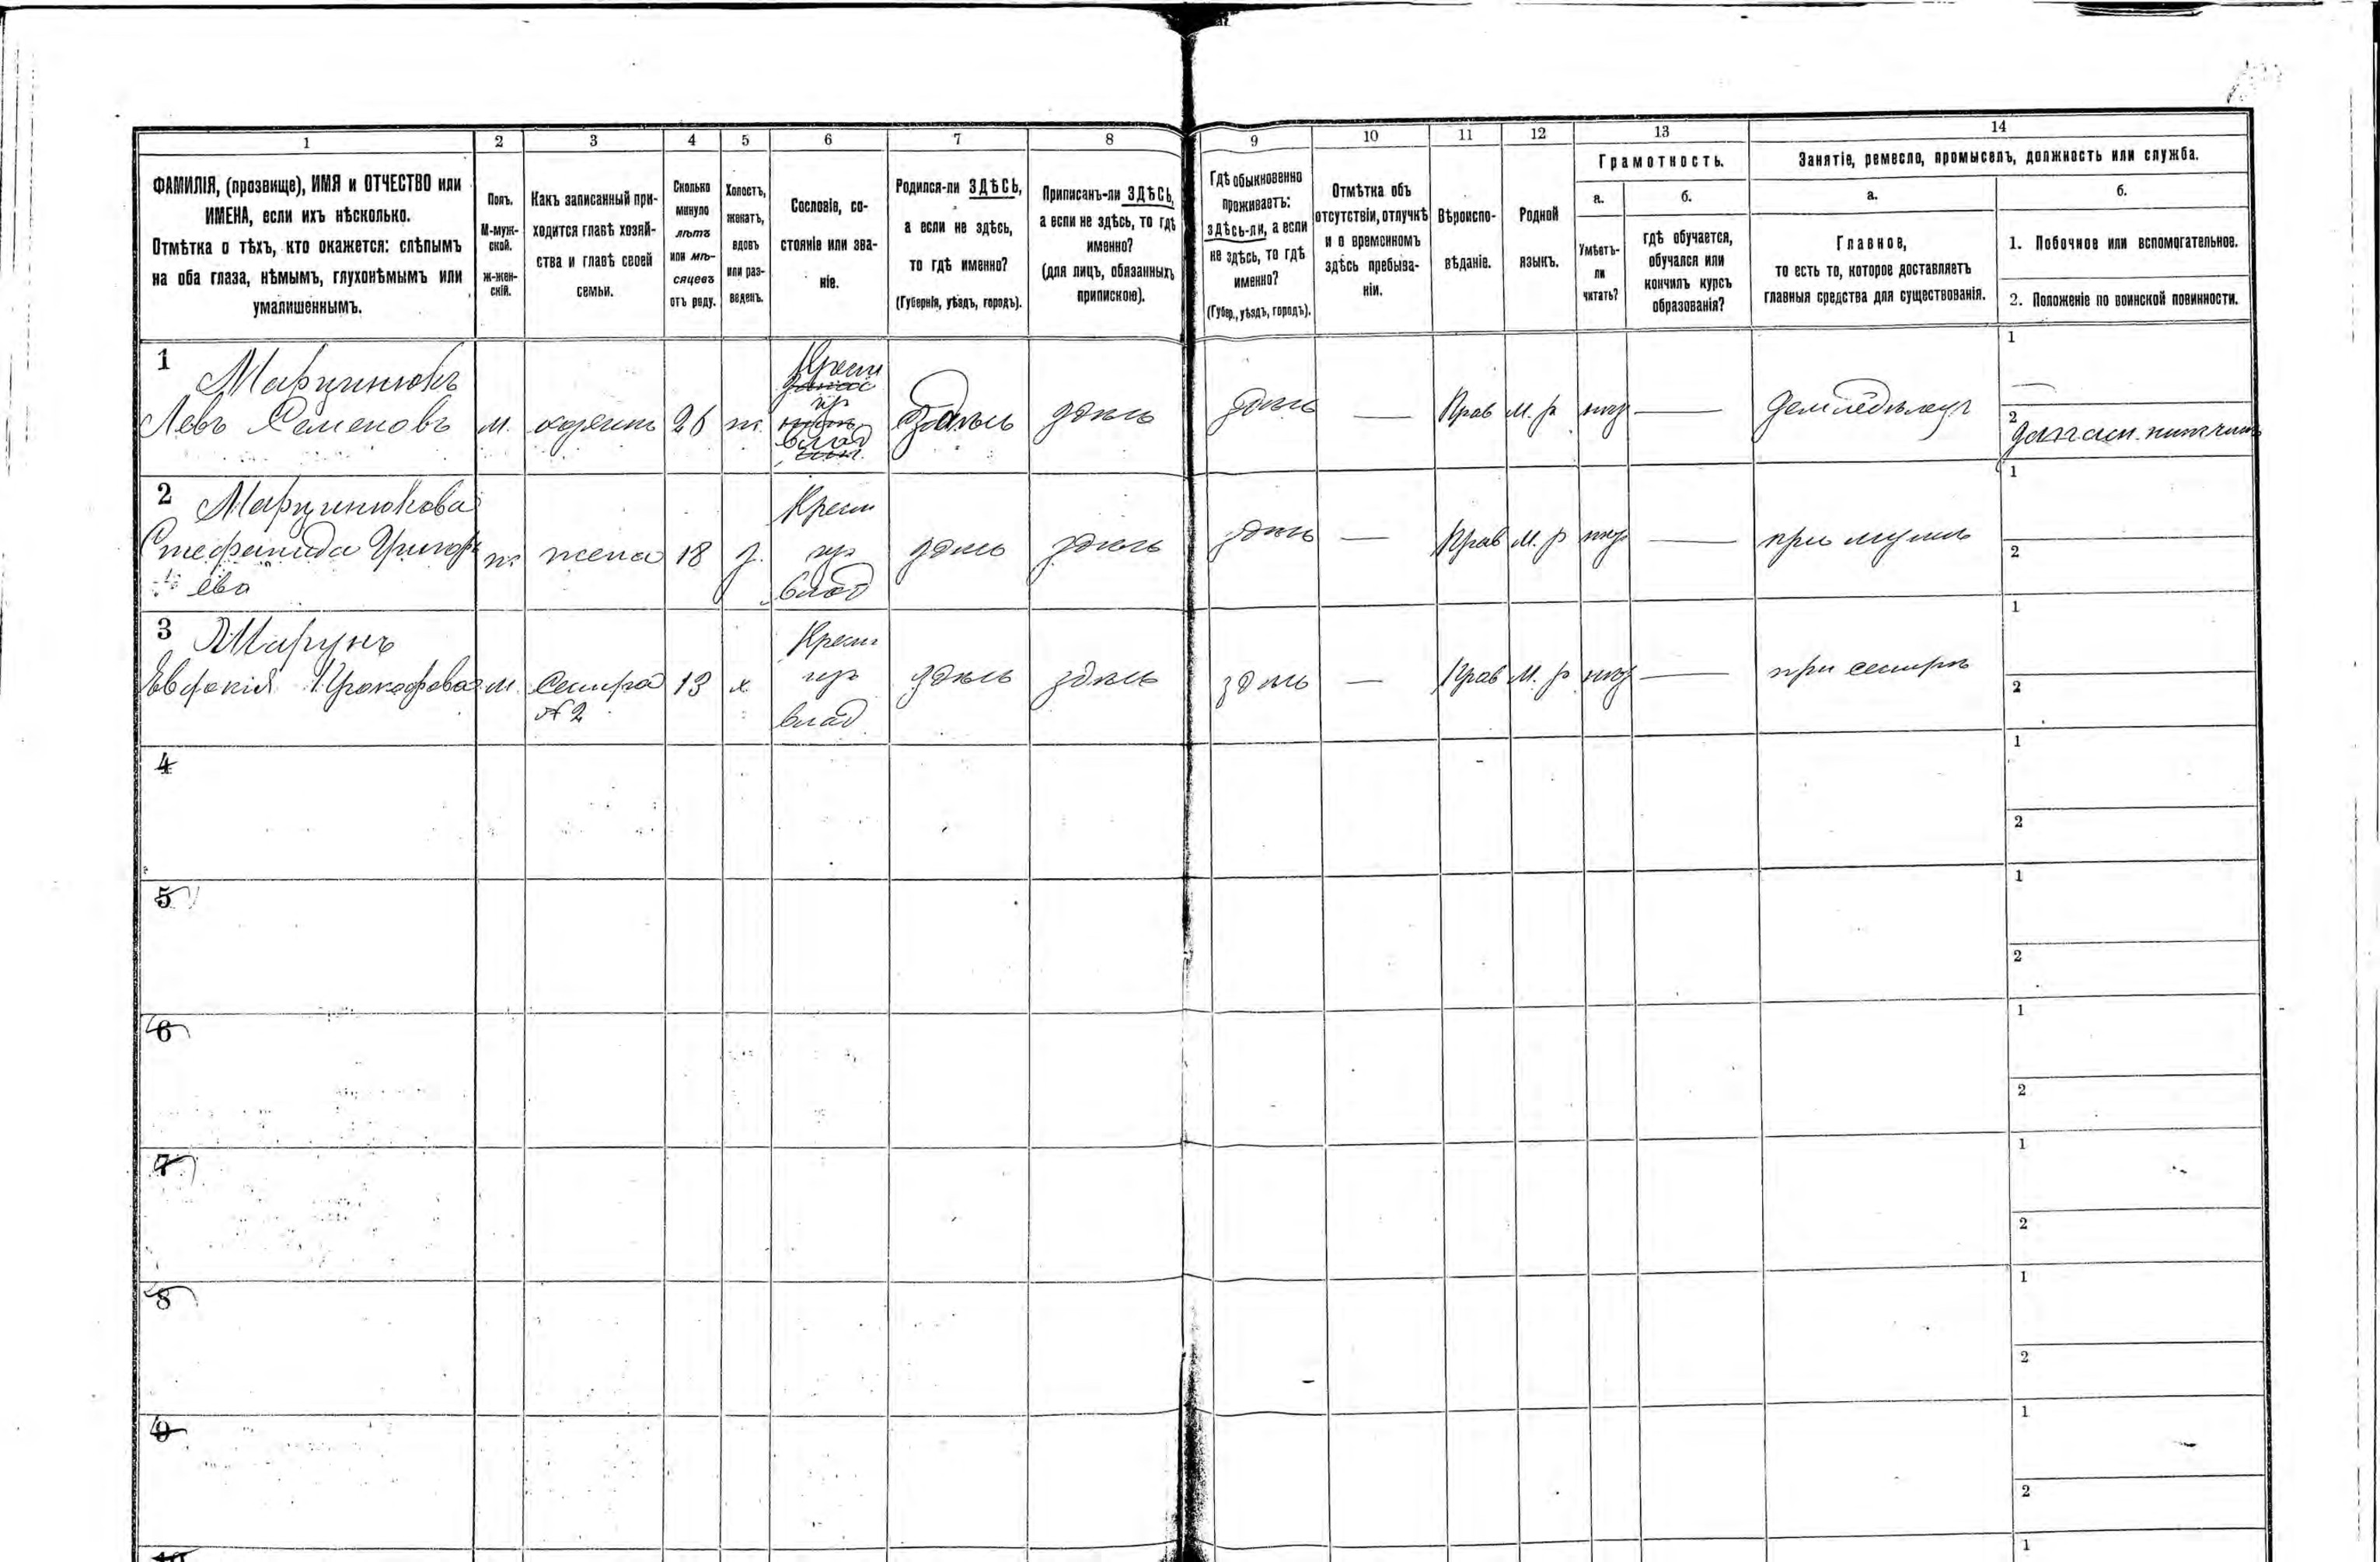 1 2 3 4 5 6 7 8 9 10 11 12 13 14
ФАМИЛІЯ, (прозвище), ИМЯ и ОТЧЕСТВО или
ИМЕНА, если ихъ нѣсколько.
Отмѣтка о тѣхъ, кто окажется: слѣпымъ
на оба глаза, нѣмымъ, глухонѣмымъ или
умалишеннымъ.
Полъ.
М-муж-
ской.
ж-жен-
скій.
Какъ записанный при-
ходится главѣ хозяй-
ства и главѣ своей
семьи.
Сколько
минуло
лѣтъ
или мѣ-
сяцевъ
отъ роду.
Холостъ,
женатъ,
вдовъ
или раз-
веденъ.
Сословіе, со-
стояніе или зва-
ніе.
Родился-ли ЗДѢСЬ,
а если не здѣсь,
то гдѣ именно?
(Губернія, уѣздъ, городъ).
Приписанъ-ли ЗДѢСЬ,
а если не здѣсь, то гдѣ
именно?
(для лицъ, обязанныхъ
припискою).
Гдѣ обыкновенно
проживаетъ:
здѣсь-ли, а если
не здѣсь, то гдѣ
именно?
(Губер., уѣздъ, городъ).
Отмѣтка объ
отсутствіи, отлучкѣ
и о временномъ
здѣсь пребыва-
ніи.
Вѣроиспо-
вѣданіе.
Родной
языкъ.
Грамотность.
а.
Умѣетъ-
ли
читать?
б.
гдѣ обучается,
обучался или
кончилъ курсъ
образованія?
Занятіе, ремесло, промыселъ, должность или служба.
а.
Главное,
то есть то, которое доставляетъ
главныя средства для существованія.
б.
1. Побочное или вспомогательное.
2. Положеніе по воинской повинности.
1 Марцинюкъ
Левъ Семеновъ м. 26 ж. Крест влад здѣсь здѣсь здѣсь — Прав М. р — 1 — 2
2 Марцинюкова
Стефанида Григорь
ева ж жена 18 з. Крест влад здѣсь здѣсь здѣсь — Прав М. р — при мужѣ 1 2
3
Прокофьева м. Сестра
№ 2 13 х Крест влад здѣсь здѣсь здѣсь — Прав М. р — при сестрѣ 1 2
4 1 2
5 1 2
6 1 2
7 1 2
8 1 2
9 1 2
1